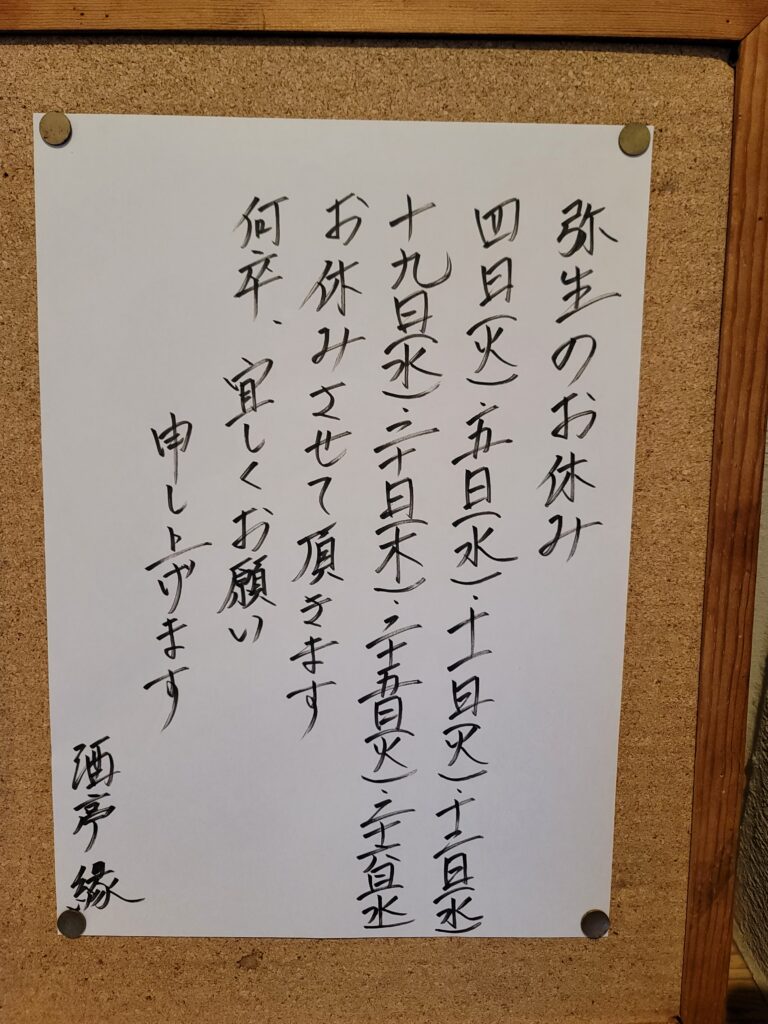 弥生のお休み
四日(火)・五日(水)・十一日(火)・十二日(水)
十九日(水)・二十日(木)・二十五日(火)・二十六日(水
お休みさせて頂きます
何卒、宜しくお願い
申し上げます
酒亭 縁